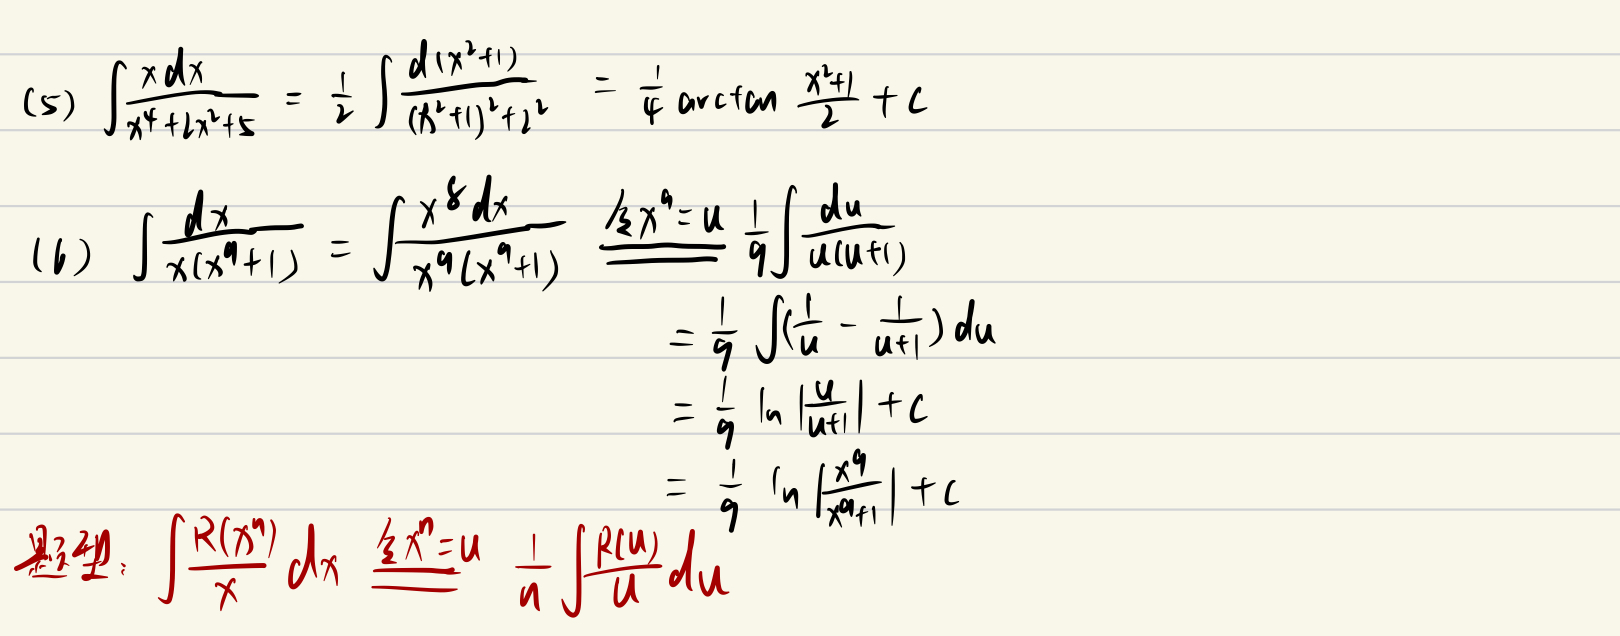 (5) ∫ x dx / (x⁴+2x²+5) = 1/2 ∫ d(x²+1) / ((x²+1)²+2²) = 1/4 arctan (x²+1)/2 + C
(6) ∫ dx / (x(x⁹+1)) = ∫ x⁸ dx / (x⁹(x⁹+1)) 令x⁹=u 1/9 ∫ du / (u(u+1))
= 1/9 ∫ (1/u - 1/(u+1)) du
= 1/9 ln |u/(u+1)| + C
= 1/9 ln |x⁹/(x⁹+1)| + C
题型: ∫ R(xⁿ)/x dx 令xⁿ=u 1/n ∫ R(u)/u du